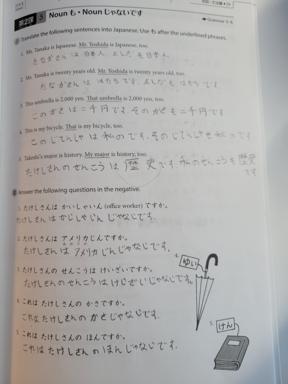 第2課 5 Noun も・Noun じゃないです
Grammar 5・6
Translate the following sentences into Japanese. Use も after the underlined phrases.
1. Ms. Tanaka is Japanese. Mr. Yoshida is Japanese, too.
2. Ms. Tanaka is twenty years old. Mr. Yoshida is twenty years old, too.
3. This umbrella is 2,000 yen. That umbrella is 2,000 yen, too.
このかさは二千円です。そのかさも二千円です
4. This is my bicycle. That is my bicycle, too.
5. Takeshi's major is history. My major is history, too.
たけしさんのせんこうは歴史です。私のせんこうも歴史
です
Answer the following questions in the negative.
1. たけしさんは かいしゃいん (office worker) ですか。
2. たけしさんは アメリカじんですか。
たけしさんは アメリカじんじゃないです。
3. たけしさんの せんこうは けいざいですか。
たけしさんのせんこうは けいざいじゃないです。
4. これは たけしさんの かさですか。
これは たけしさんの かさじゃないです。
5. これは たけしさんの ほんですか。
これは たけしさんの ほんじゃないです。
4. ゆい
5. けん